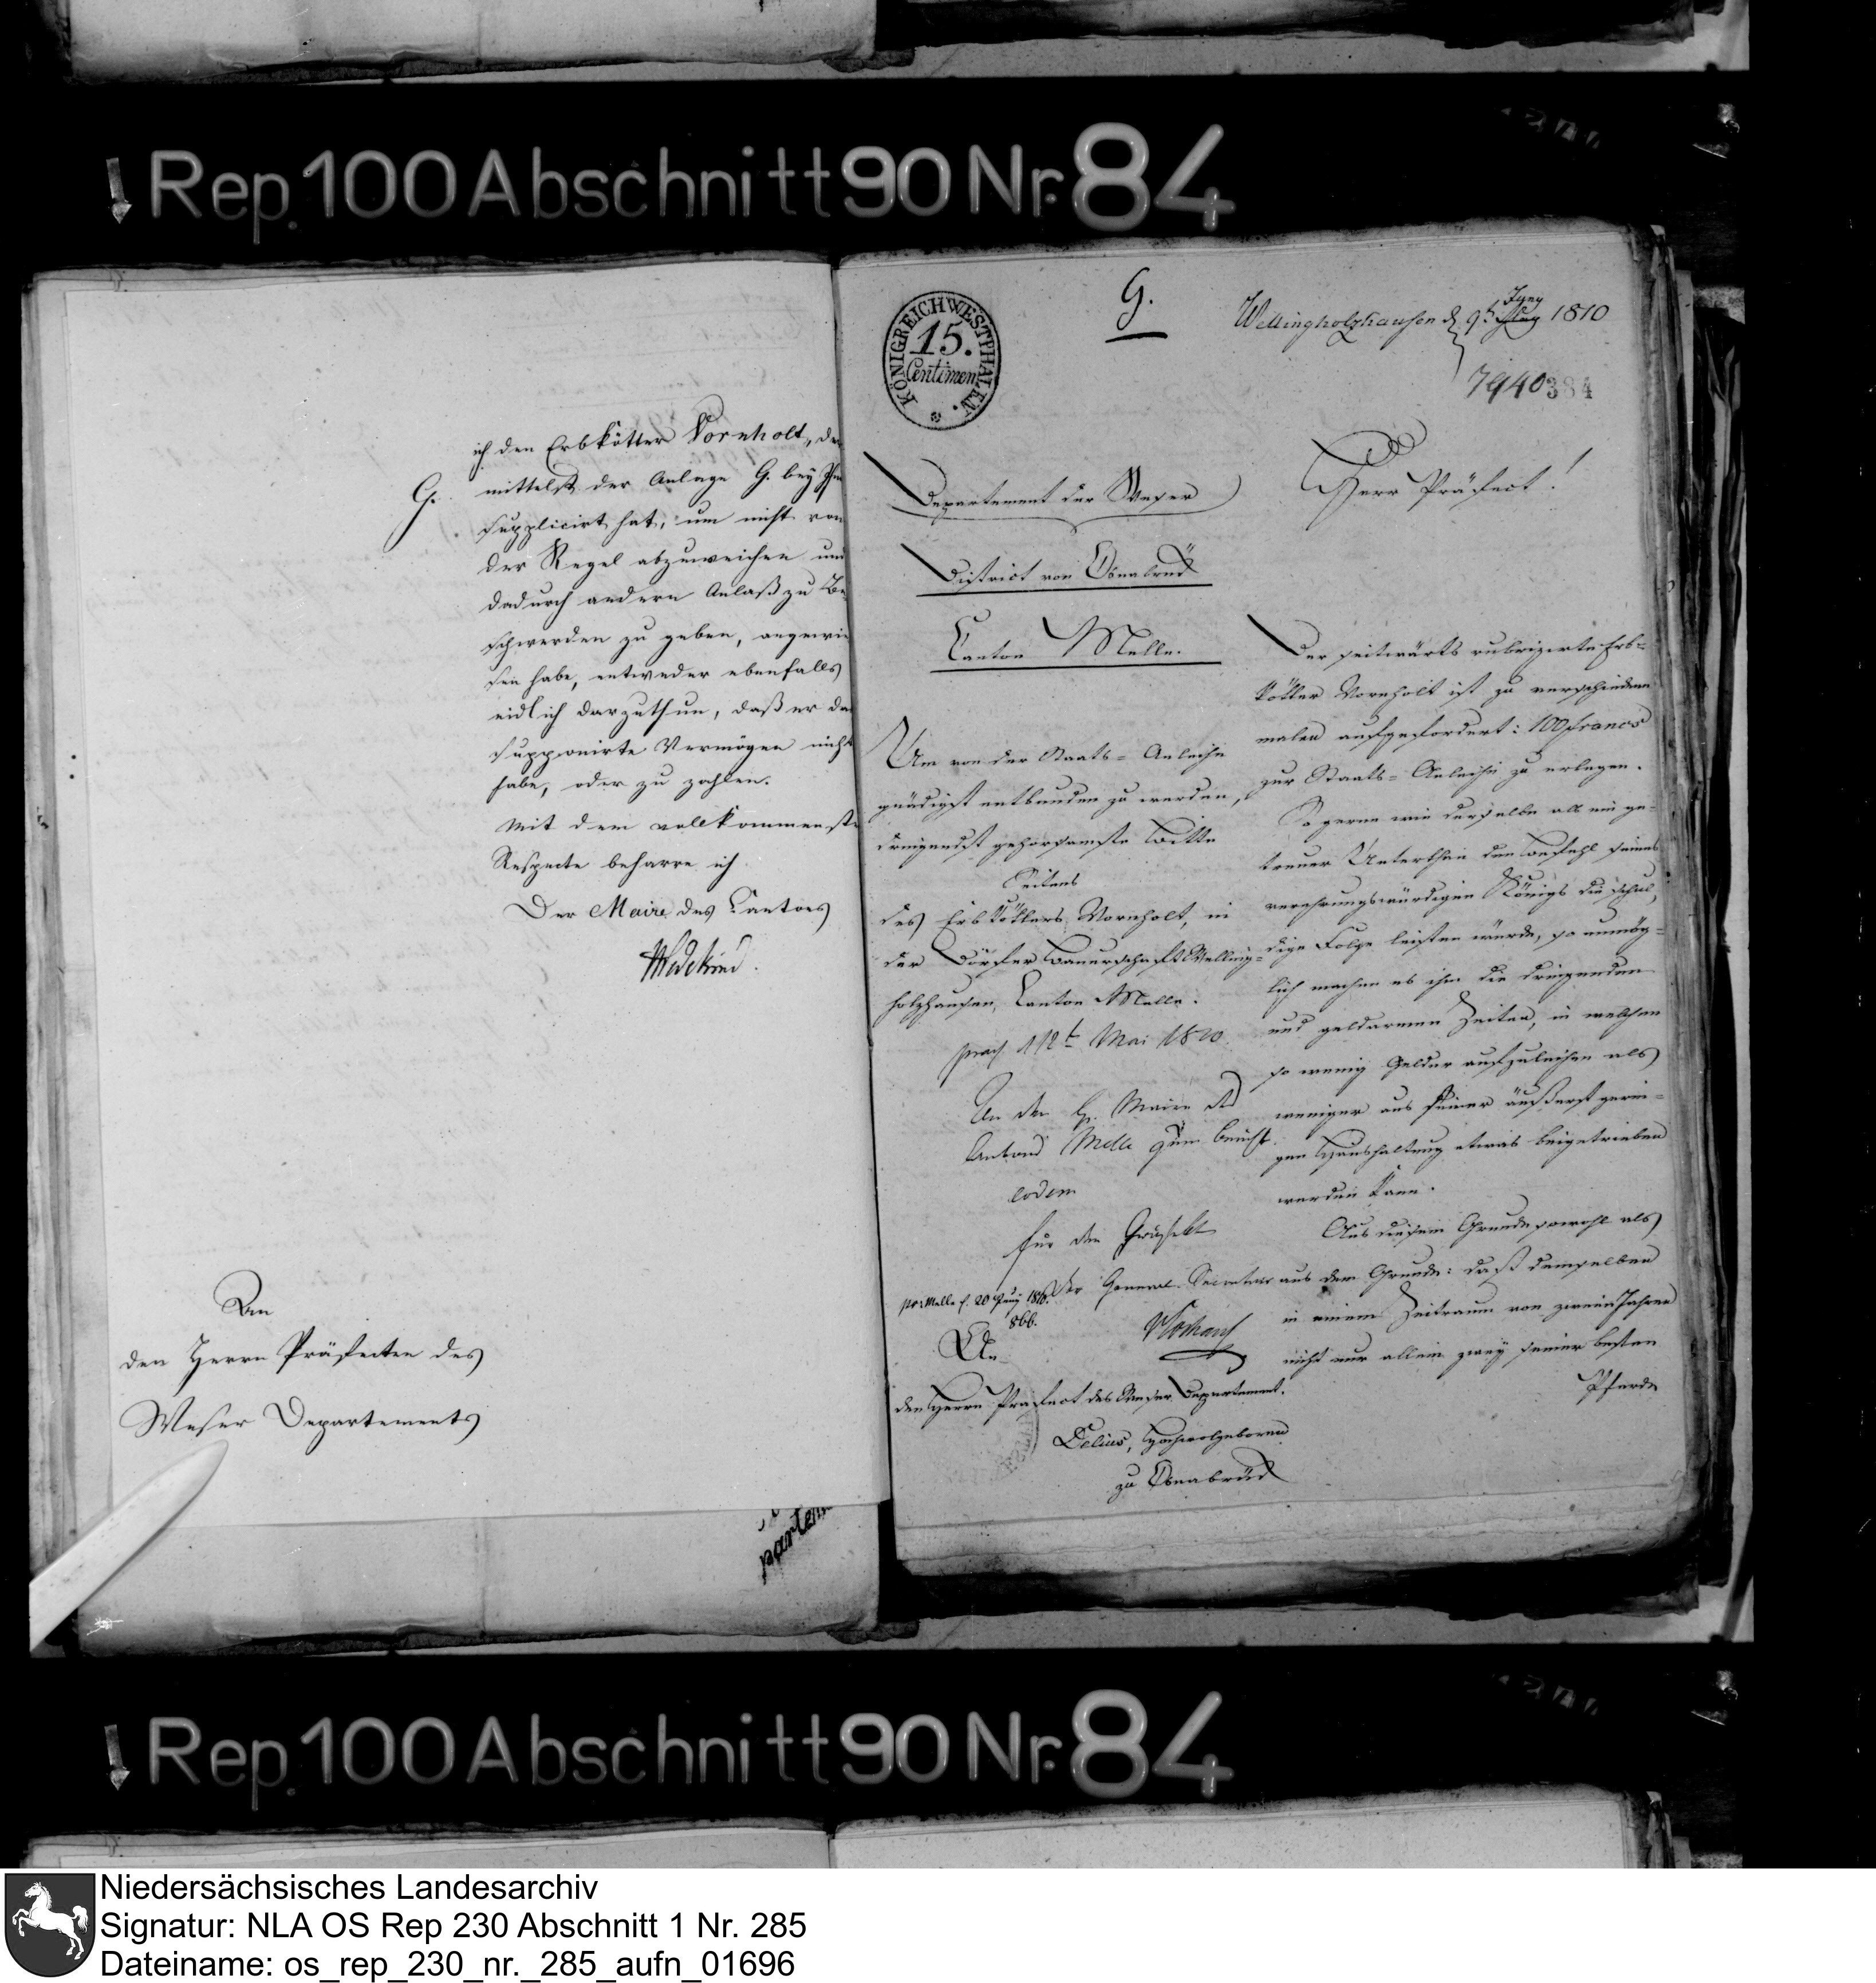 Rep. 100 Abschnitt 90 Nr. 84
ich den Erbkötter Vornholt, der
G. mittelst der Anlage G. bey Ihnen
supplicirt hat, um nicht von
der Regel abzuweichen und
dadurch andern Anlaß zu Be-
schwerden zu geben, angewie-
sen habe, entweder ebenfalls
eidlich darzuthun, daß er das
supponirte Vermögen nicht
habe, oder zu zahlen.
Mit dem vollkommenste
Respecte beharre ich
Der Maire des Cantons
Wedekind.
An
den Herrn Präfecten des
Weser Departements
partem
G.
KÖNIGREICH WESTPHALEN.
15.
Centimen
Wellingholzhausen d. 9t Juny 1810
7940 384
Departement der Weser
Herr Präfect!
District von Osnabrück
Canton Melle.
Um von der Staats=Anleihe
gnädigst entbunden zu werden,
dringendst gehorsamste Bitte
Seitens
des Erbkötters Vornholt, in
der Dörfer Bauerschaft Welling-
holzhausen, Canton Melle.
praes. 12t Mai 1810
An den H. Maire des
Cantons Melle zum Bericht.
eodem
für den Präfekt
der General-Secretair
pr: Melle d. 20 Juny 1810.
866.
An
den Herrn Präfect des Weser Departement.
Delius, Hochwolgeboren
zu Osnabrück
Der seitwärts rubrizirte Erb=
kötter Vornholt ist zu verschiedenen
malen aufgefordert: 100 francs
zur Staats=Anleihe zu erlegen.
So gerne wie derselbe als ein ge-
treuer Unterthan dem Befehl seines
verehrungswürdigen Königs die schul,
dige Folge leisten würde, so unmög=
lich machen es ihm die dringenden
und geldarmen Zeiten, in welchen
so wenig Gelder aufzuleihen als
weniger aus seiner äußerst gerin=
gen Haushaltung etwas beigetrieben
werden kann.
Aus diesem Grunde sowohl als
aus dem Grunde: daß demselben
in einem Zeitraum von zweien Jahren
nicht nur allein zwey seiner besten
Pferde
Rep. 100 Abschnitt 90 Nr. 84
Niedersächsisches Landesarchiv
Signatur: NLA OS Rep 230 Abschnitt 1 Nr. 285
Dateiname: os_rep_230_nr._285_aufn_01696